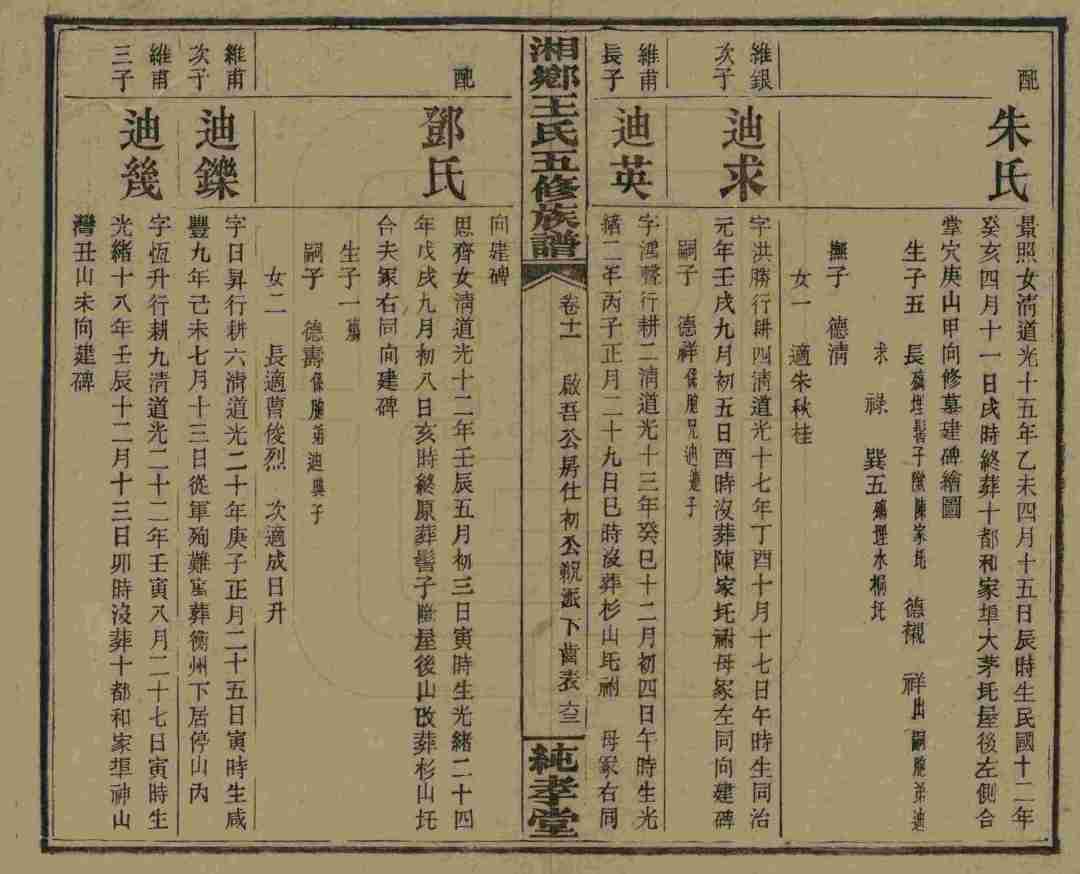 配
朱氏
景照女淸道光十五年乙未四月十五日辰時生民國十二年
癸亥四月十一日戌時終葬十都和家埠大茅坵屋後左側合
堂穴庚山甲向修墓建碑繪圖
生子五 長殤埋髻子陇陳家坵 德襯 祥出嗣胞弟迪
求 祿 巽五殤埋水桐坵
撫子 德淸
女一 適朱秋桂
維銀
次子
迪求
字洪勝行耕四淸道光十七年丁酉十月十七日午時生同治
元年壬戌九月初五日酉時沒葬陳家坵祔母冢左同向建碑
嗣子 德祥係胞兄迪子
維甫
長子
迪英
字鴻聲行耕二淸道光十三年癸巳十二月初四日午時生光
緒二年丙子正月二十九日巳時沒葬杉山坵祔 母冢右同
湘鄉王氏五修族譜
卷十一 啟吾公房仕初公派下齒表 六三
純孝堂
向建碑
配
鄧氏
思齊女淸道光十二年壬辰五月初三日寅時生光緒二十四
年戊戌九月初八日亥時終原葬髻子陇屋後山改葬杉山坵
合夫冢右同向建碑
生子一殤
嗣子 德壽係胞弟迪興子
女二 長適曹俊烈 次適成日升
維甫
次子
迪鑠
字日昇行耕六淸道光二十年庚子正月二十五日寅時生咸
豐九年己未七月十三日從軍殉難寓葬衡州下居停山內
維甫
三子
迪幾
字恆升行耕九淸道光二十二年壬寅八月二十七日寅時生
光緒十八年壬辰十二月十三日卯時沒葬十都和家埠神山
灣丑山未向建碑